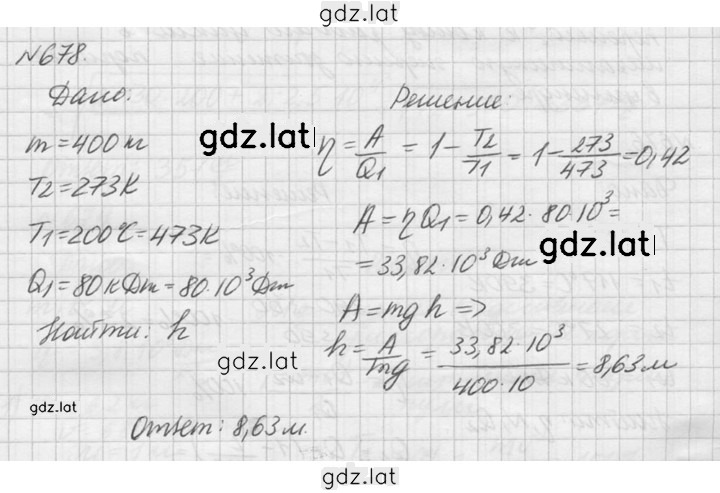 gdz.lat
№678.
Дано.
m = 400 кг
T2 = 273К
T1 = 200°C = 473К
Q1 = 80 кДж = 80·10³ Дж
Найти: h
gdz.lat
Решение:
gdz.lat
η = A/Q1 = 1 - T2/T1 = 1 - 273/473 = 0,42
A = ηQ1 = 0,42·80·10³ =
= 33,82·10³ Дж
gdz.lat
A = mgh =>
h = A/mg = 33,82·10³/400·10 = 8,63 м
gdz.lat
Ответ: 8,63 м.
gdz.lat